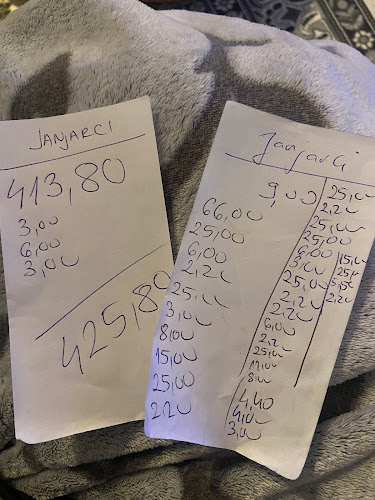 JANJARCI
413,80
3,00
6,00
3,00
425,80
Janjarci
66,00
25,00
6,00
2,20
25,00
3,00
8,00
15,00
25,00
2,20
9,00
25,00
2,20
25,00
25,00
6,00
3,00
25,00
2,20
2,20
6,00
2,20
25,00
8,00
4,40
3,00
15,00
25,00
2,20